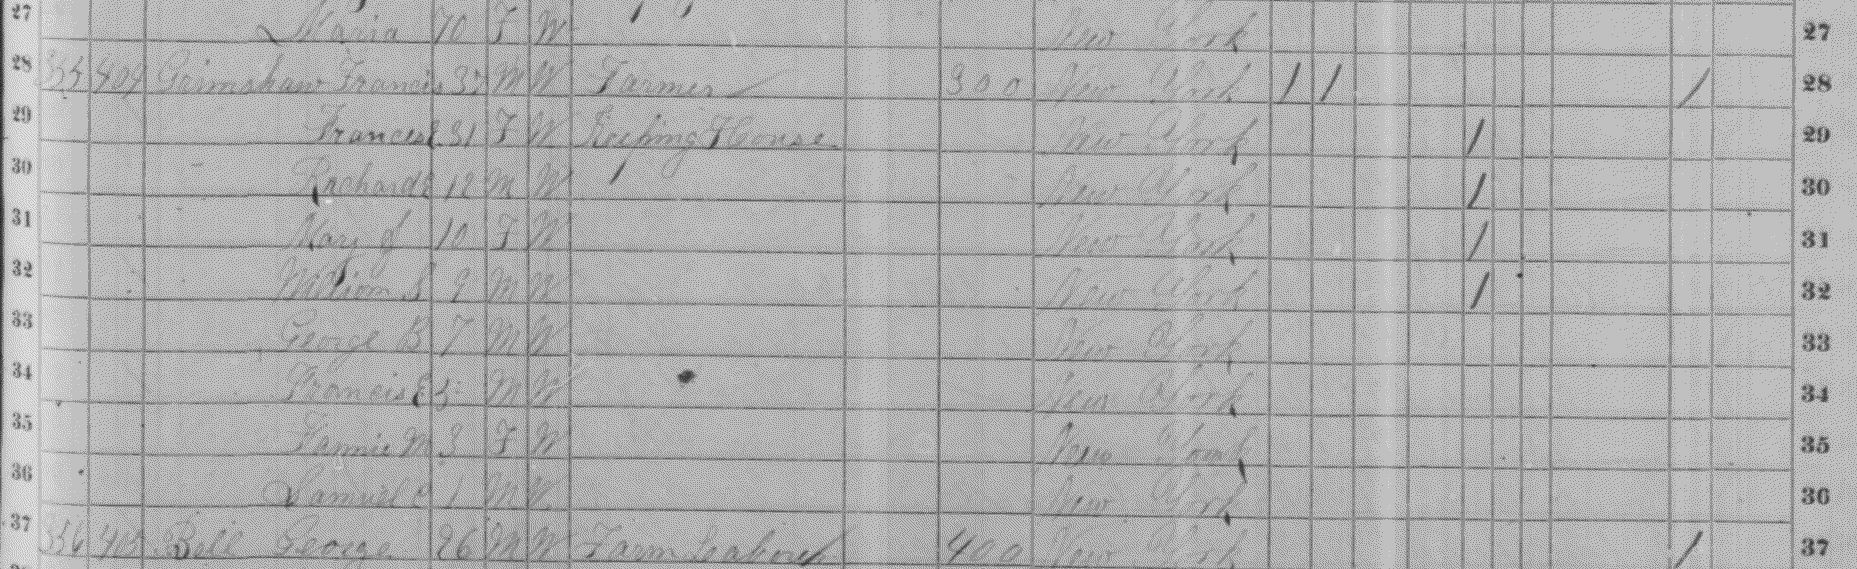 27 Maria 70 F W New York 27
28 409 Grimshaw Francis M W Farmer 300 New York 28
29 31 F W Keeping House New York 29
30 12 M W New York 30
31 Mary J 10 F W New York 31
32 William S 9 M W New York 32
33 George B 7 M W New York 33
34 Francis E 5 M W New York 34
35 Fannie M 3 F W New York 35
36 Samuel 1 M W New York 36
37 Bell George 26 M W Farm Laborer 400 New York 37